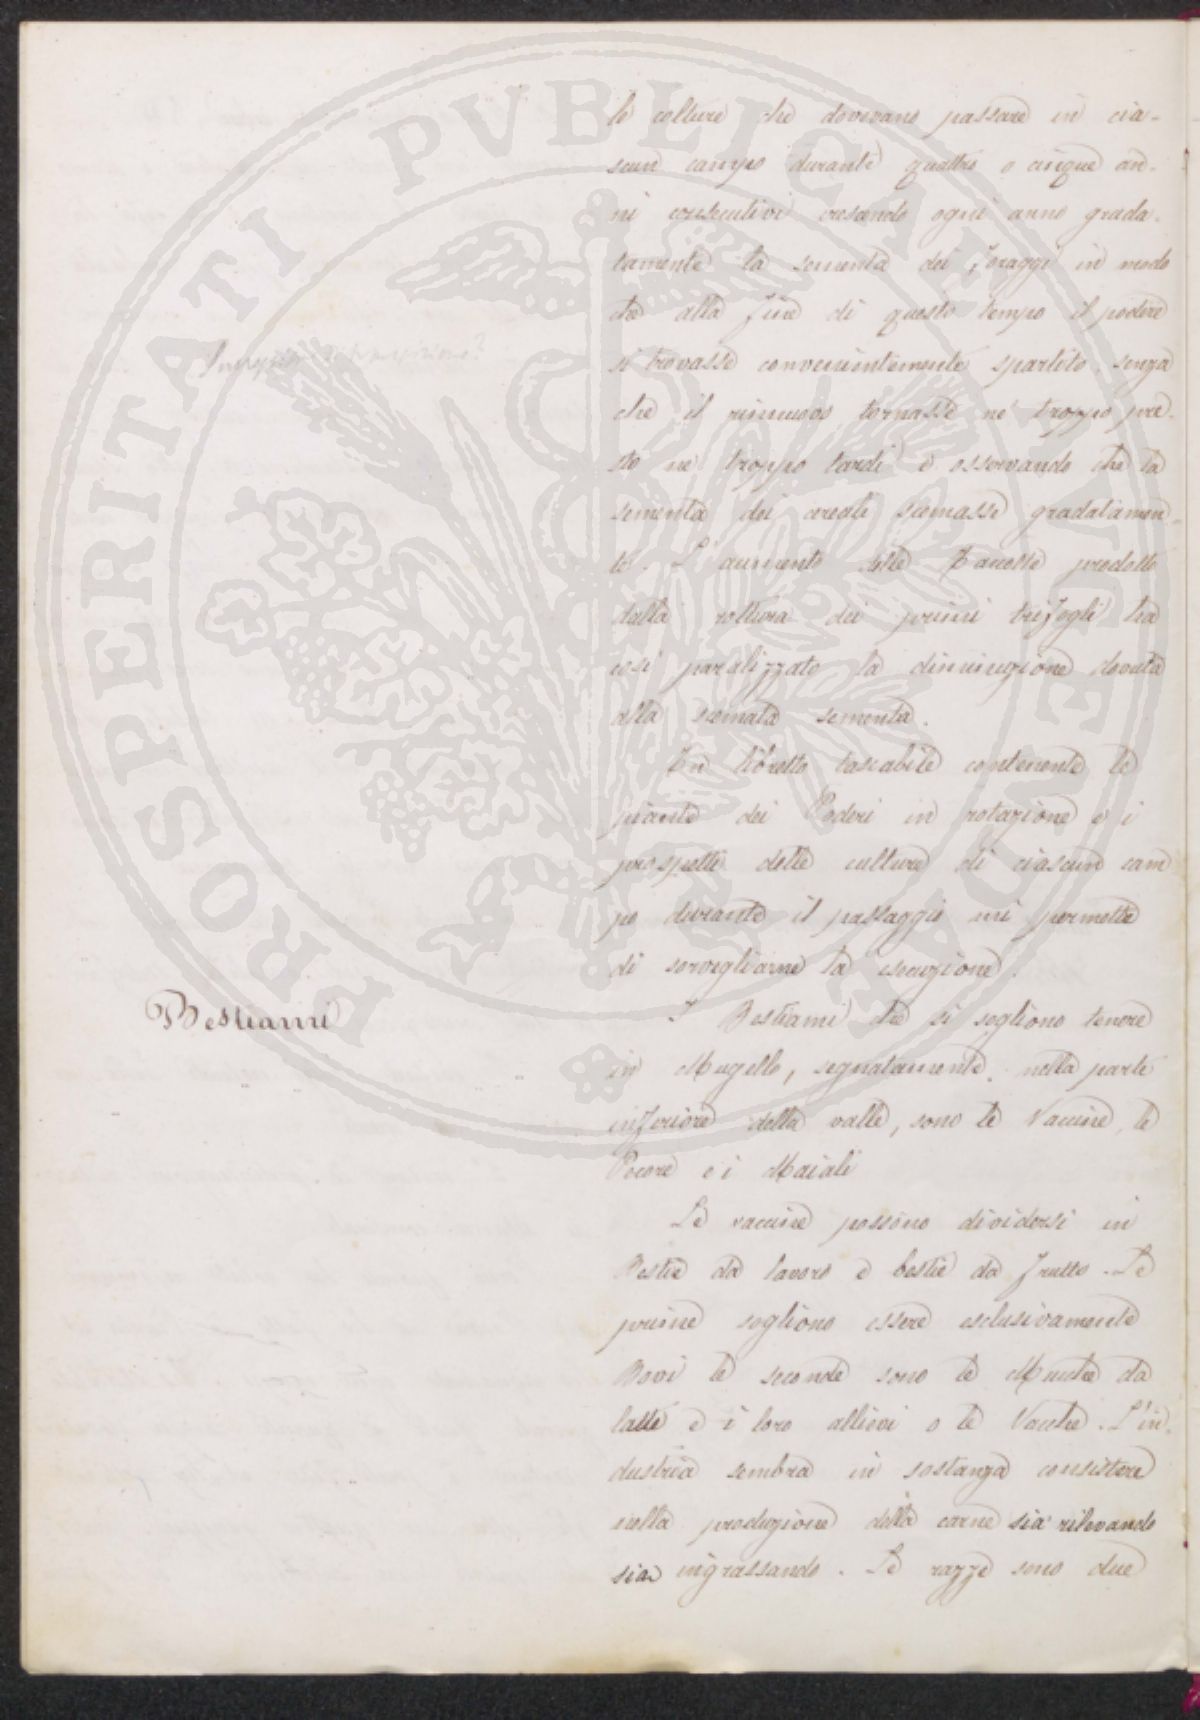 PROSPERITATI PVBLICAE AVGENDAE
le colture che dovevano passare in cia-
scun campo durante quattro o cinque an-
ni consecutivi crescendo ogni anno grada-
tamente la sementa dei foraggi in modo
che alla fine di questo tempo il podere
si trovasse convenientemente spartito, senza
che il rinnuovo tornasse nè troppo pre-
sto nè troppo tardi e osservando che la
sementa dei cereali scemasse gradatamen-
te. L'aumento delle Raccolte prodotto
dalla rottura dei primi trifogli ha
così paralizzato la diminuzione dovuta
alla scemata sementa.
Un libretto tascabile contenente le
piante dei Poderi in rotazione e i
prospetti delle culture di ciascun cam
po durante il passaggio mi permette
di sorvegliarne la esecuzione.
Bestiami
I Bestiami che si sogliono tenere
in Mugello, segnatamente nella parte
inferiore della valle, sono le Vaccine, le
Pecore e i Maiali
Le vaccine possono dividersi in
Bestie da lavoro e bestie da frutto. Le
prime sogliono essere esclusivamente
Bovi le seconde sono le Mucche da
latte e i loro allievi o le Vacche. L'in-
dustria sembra in sostanza consistere
nella produzione della carne sia rilevando
sia ingrassando. Le razze sono due